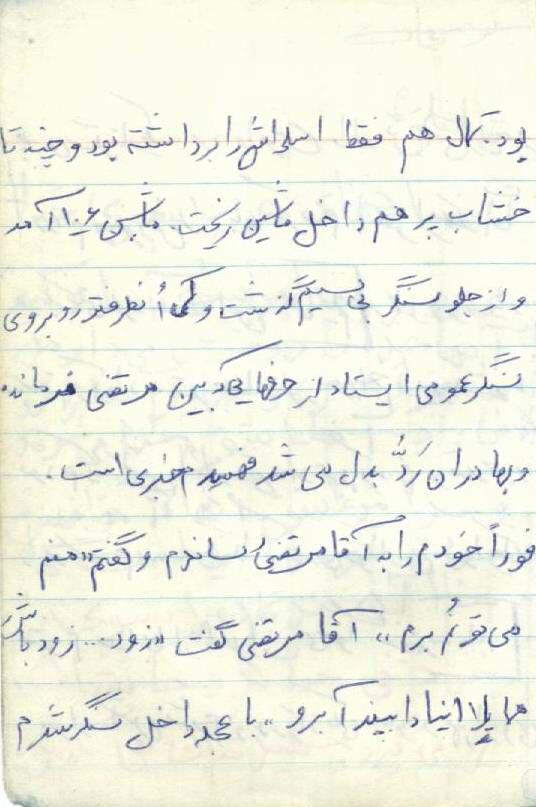 بود. کمال هم فقط اسلحه‌اش را برداشته بود و چند تا
خشاب پر هم داخل ماشین ریخت. ماشین ۱۰۶ آمد
و از جلو سنگر بی‌سیم گذشت و کمی آنطرفتر روبروی
سنگر عمومی ایستاد از حرفهایی که بین مرتضی فرمانده
و بهادران رَدُّ بدل می شد فهمیدم خبری است.
فوراً خودم را به آقا مرتضی رساندم و گفتم «منم
می تونُم برم» آقا مرتضی گفت «زود... زود باش
را ببند برو» با عجله داخل سنگر شدم